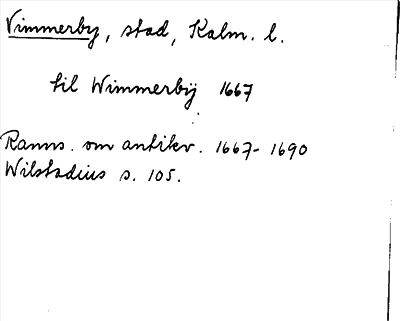 Vimmerby, stad, Kalm. l.
til Wimmerbÿ 1667
Ranns. om antikv. 1667-1690
Wilstadius s. 105.